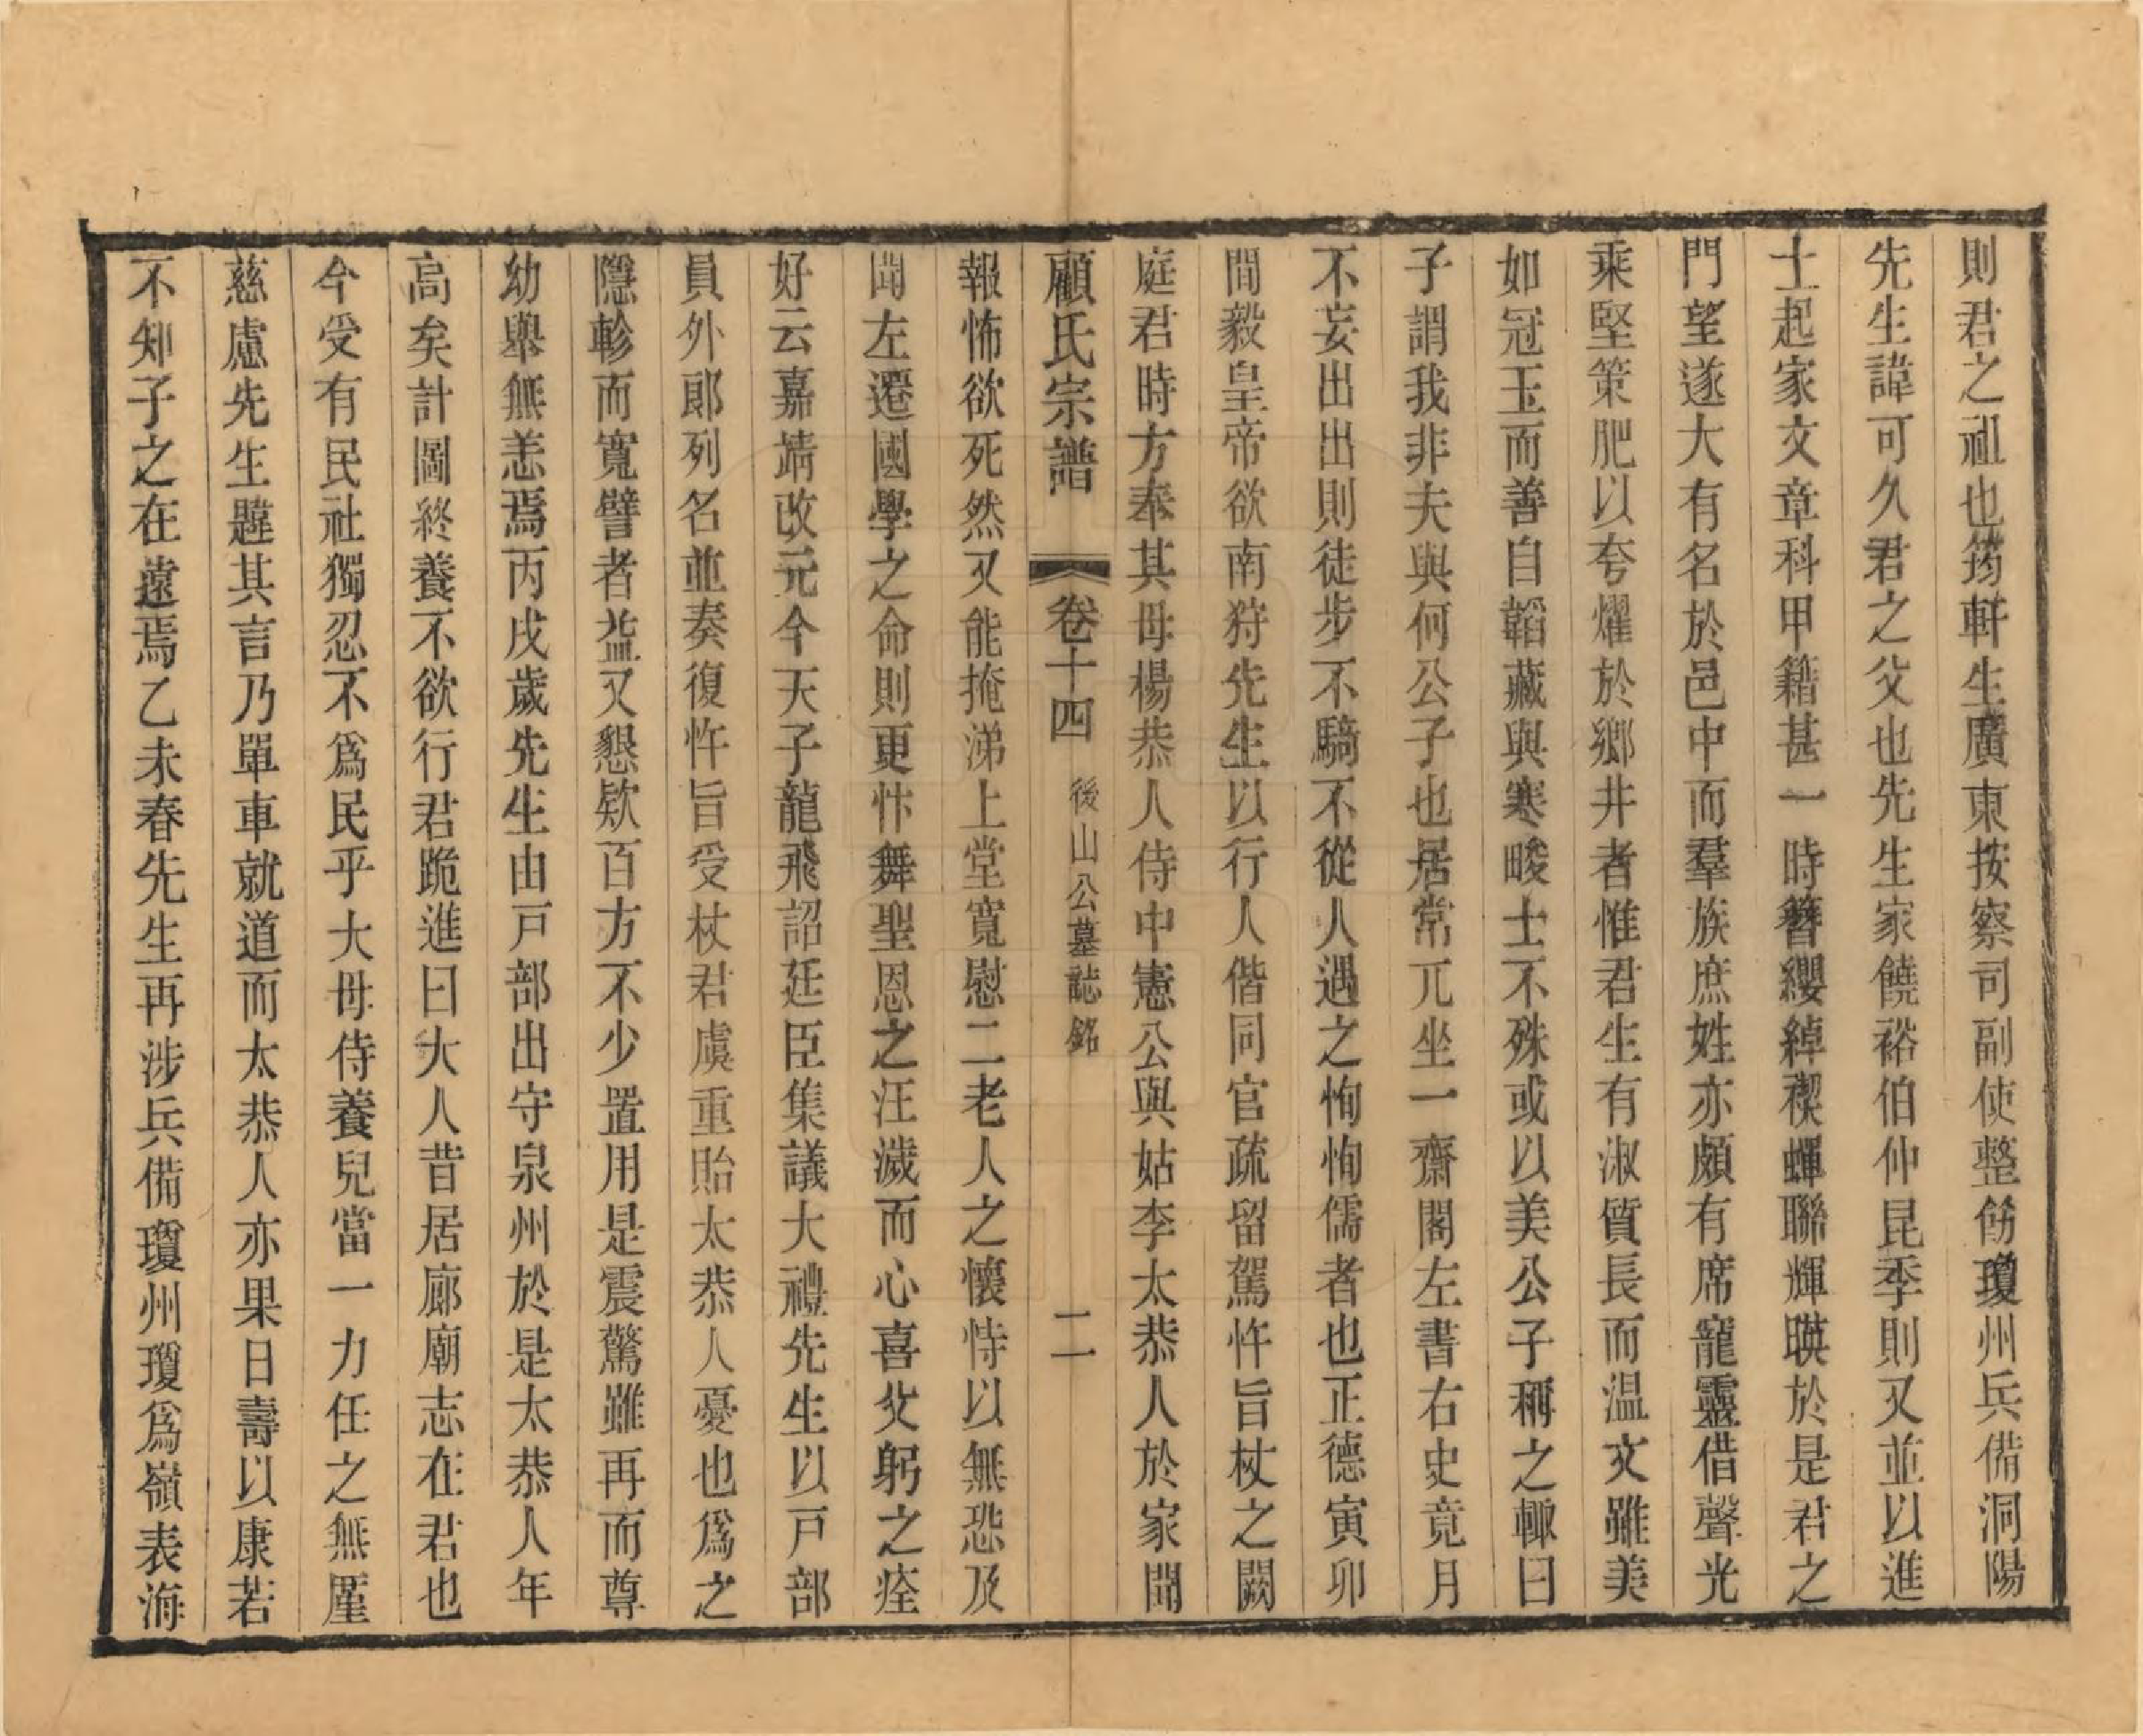 則君之祖也筠軒生廣東按察司副使整飭瓊州兵備洞陽
先生諱可久君之父也先生家饒裕伯仲昆季則又並以進
士起家文章科甲籍甚一時簪纓綽禊蟬聯輝暎於是君之
門望遂大有名於邑中而羣族庶姓亦頗有席寵靈借聲光
乘堅策肥以夸燿於鄉井者惟君生有淑質長而温文雖美
如冠玉而善自韜藏與寒畯士不殊或以美公子稱之輙曰
子謂我非夫與何公子也居常兀坐一齋閣左書右史竟月
不妄出出則徒步不騎不從人遇之恂恂儒者也正德寅卯
間毅皇帝欲南狩先生以行人偕同官疏留駕忤旨杖之闕
庭君時方奉其母楊恭人侍中憲公與姑李太恭人於家聞
顧氏宗譜 卷十四 後山公墓誌銘 二
報怖欲死然又能掩涕上堂寬慰二老人之懷恃以無恐及
聞左遷國學之命則更忭舞聖恩之汪濊而心喜父躬之痊
好云嘉靖改元今天子龍飛詔廷臣集議大禮先生以戸部
員外郎列名並奏復忤旨受杖君虞重貽太恭人憂也爲之
隱軫而寬譬者益又懇欵百方不少置用是震驚雖再而尊
幼舉無恙焉丙戌歲先生由戸部出守泉州於是太恭人年
高矣計圖終養不欲行君跪進曰大人昔居廊廟志在君也
今受有民社獨忍不爲民乎大母侍養兒當一力任之無厪
慈慮先生韙其言乃單車就道而太恭人亦果日壽以康若
不知子之在遠焉乙未春先生再涉兵備瓊州瓊爲嶺表海